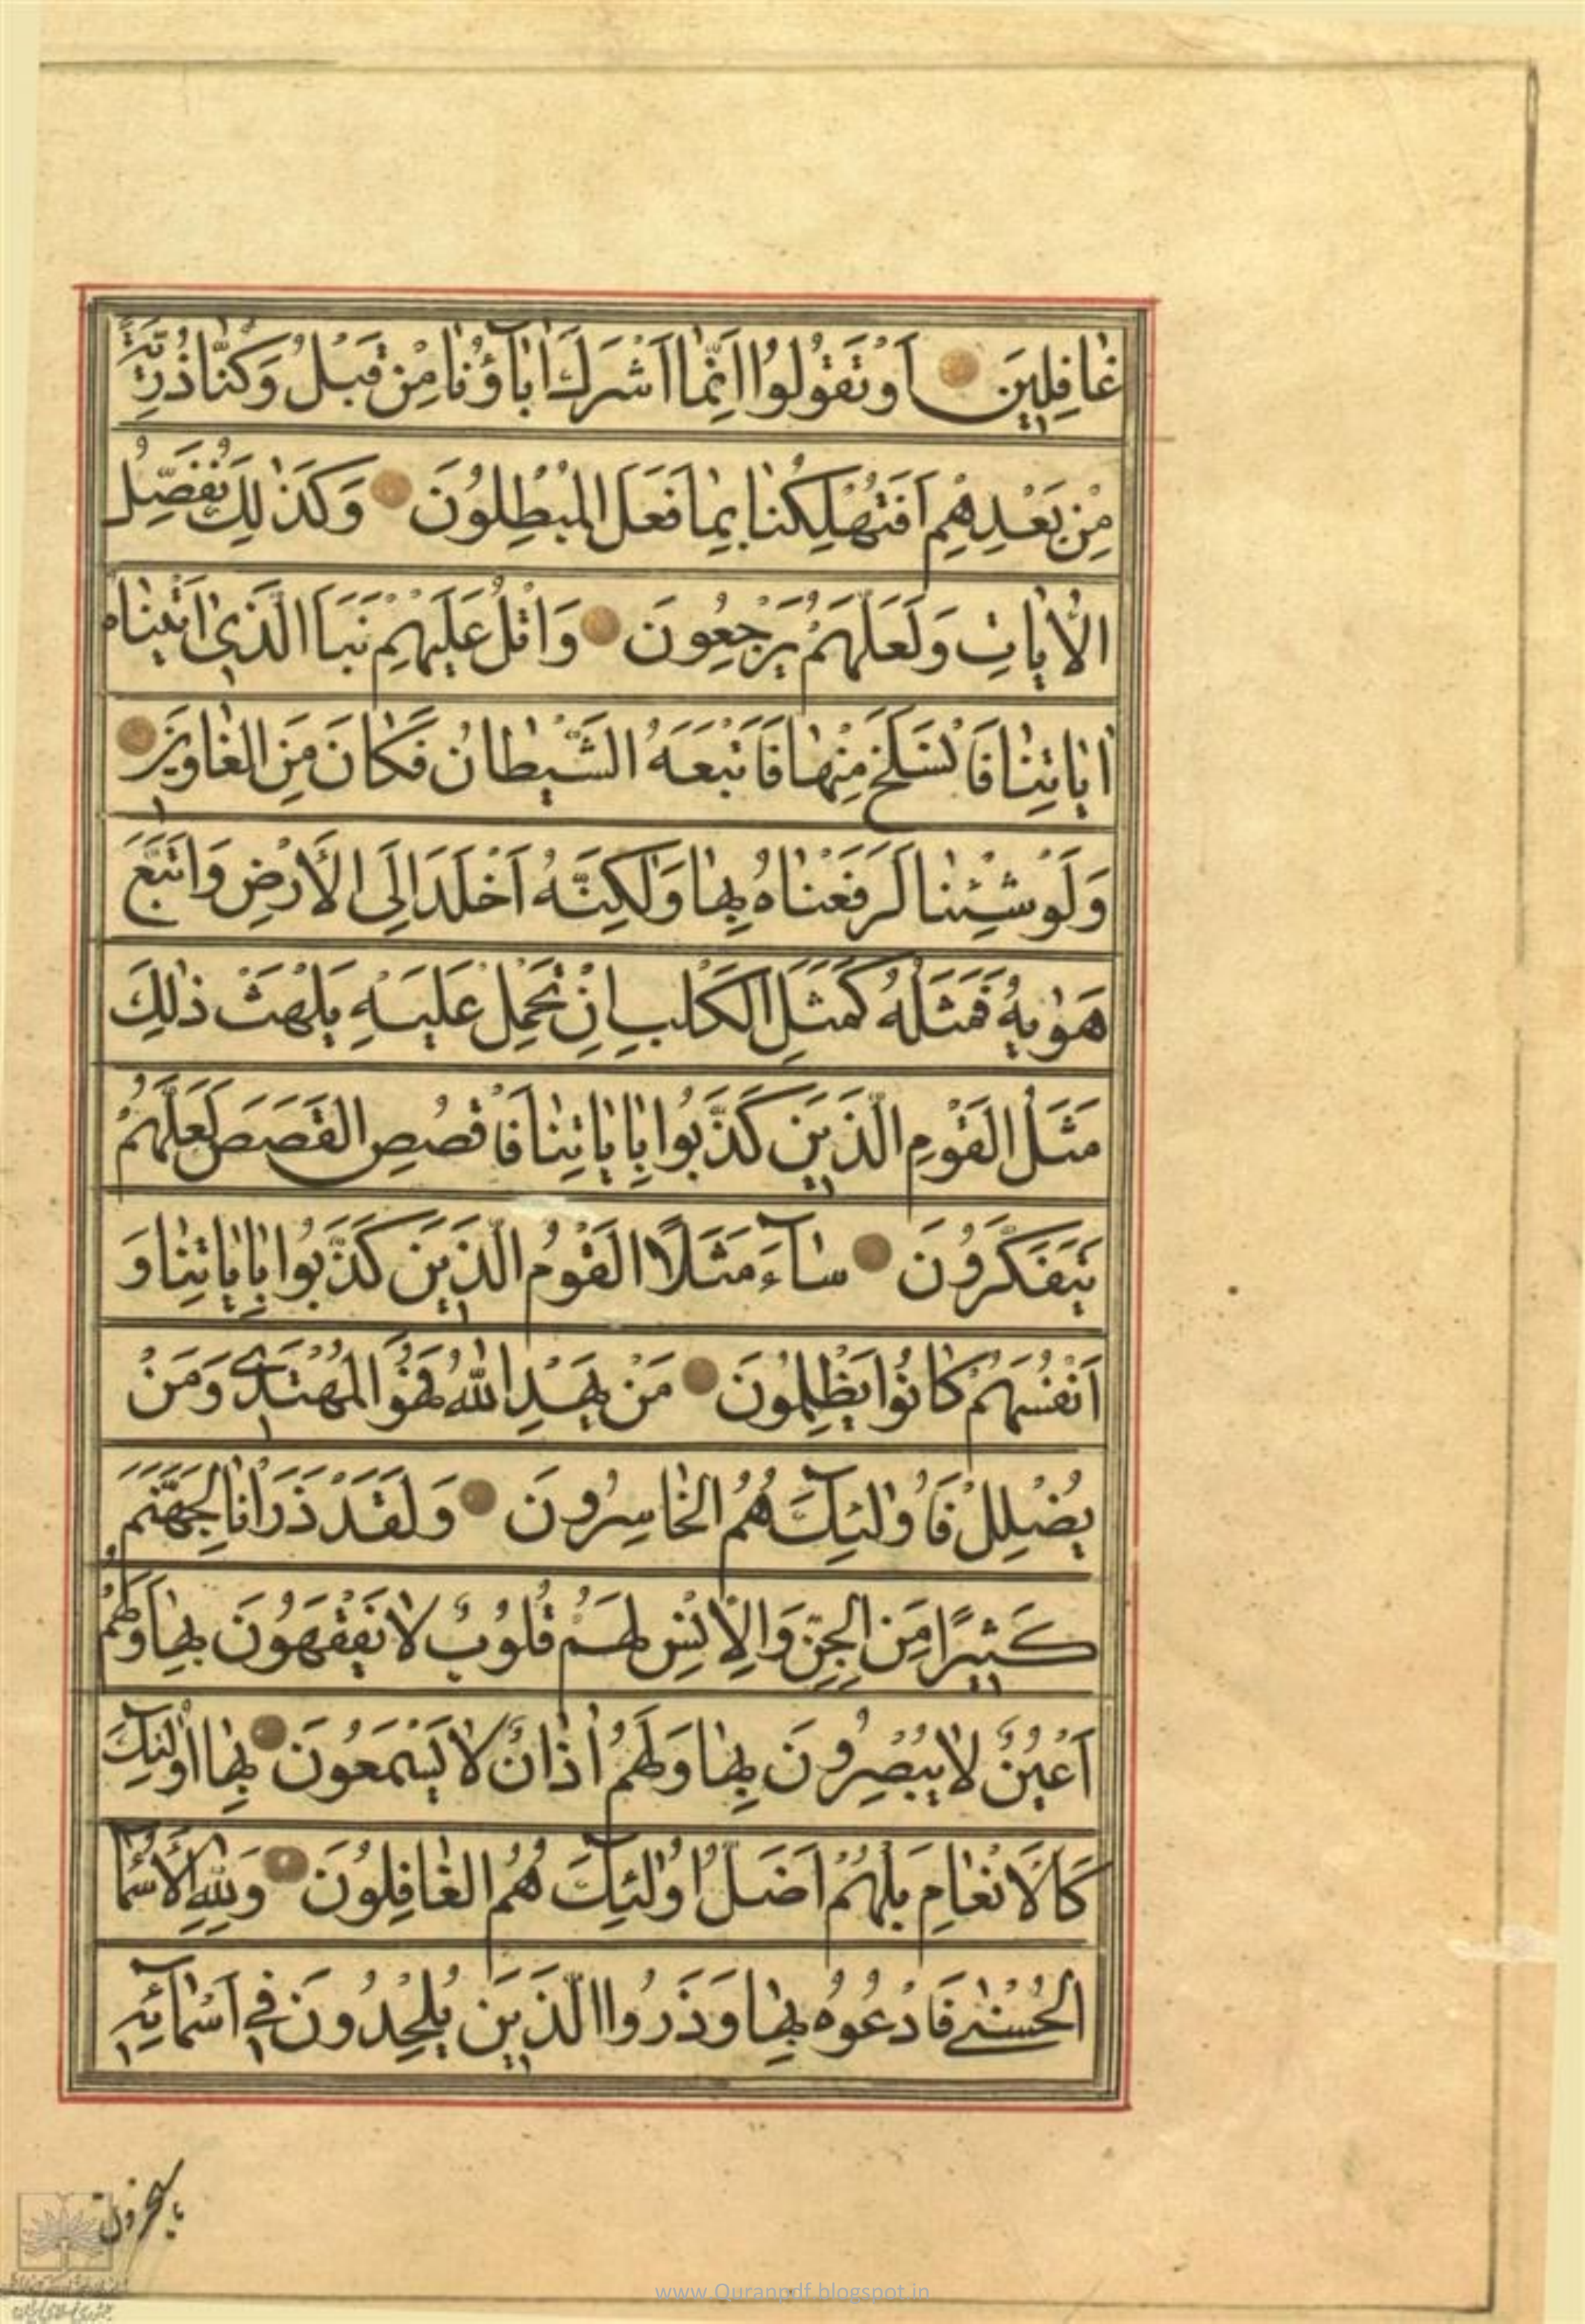 غٰافِلِينَ اَوْ تَقُولُوا اِنَّمٰا اَشْرَكَ اٰبٰآؤُنٰا مِنْ قَبْلُ وَكُنّٰا ذُرِّيَّةً
مِنْ بَعْدِهِمْ اَفَتُهْلِكُنٰا بِمٰا فَعَلَ الْمُبْطِلُونَ وَكَذٰلِكَ نُفَصِّلُ
الْاٰيٰاتِ وَلَعَلَّهُمْ يَرْجِعُونَ وَاتْلُ عَلَيْهِمْ نَبَاَ الَّذِي اٰتَيْنٰاهُ
اٰيٰاتِنٰا فَانْسَلَخَ مِنْهٰا فَاَتْبَعَهُ الشَّيْطٰانُ فَكٰانَ مِنَ الْغٰاوِينَ
وَلَوْ شِئْنٰا لَرَفَعْنٰاهُ بِهٰا وَلٰكِنَّهُ اَخْلَدَ اِلَى الْاَرْضِ وَاتَّبَعَ
هَوٰيهُ فَمَثَلُهُ كَمَثَلِ الْكَلْبِ اِنْ تَحْمِلْ عَلَيْهِ يَلْهَثْ ذٰلِكَ
مَثَلُ الْقَوْمِ الَّذِينَ كَذَّبُوا بِاٰيٰاتِنٰا فَاقْصُصِ الْقَصَصَ لَعَلَّهُمْ
يَتَفَكَّرُونَ سٰآءَ مَثَلًا الْقَوْمُ الَّذِينَ كَذَّبُوا بِاٰيٰاتِنٰا وَ
اَنْفُسَهُمْ كٰانُوا يَظْلِمُونَ مَنْ يَهْدِ اللّٰهُ فَهُوَ الْمُهْتَدِي وَمَنْ
يُضْلِلْ فَاُولٰئِكَ هُمُ الْخٰاسِرُونَ وَلَقَدْ ذَرَاْنٰا لِجَهَنَّمَ
كَثِيرًا مِنَ الْجِنِّ وَالْاِنْسِ لَهُمْ قُلُوبٌ لٰا يَفْقَهُونَ بِهٰا وَلَهُمْ
اَعْيُنٌ لٰا يُبْصِرُونَ بِهٰا وَلَهُمْ اٰذٰانٌ لٰا يَسْمَعُونَ بِهٰا اُولٰئِكَ
كَالْاَنْعٰامِ بَلْ هُمْ اَضَلُّ اُولٰئِكَ هُمُ الْغٰافِلُونَ وَلِلّٰهِ الْاَسْمٰا
الْحُسْنٰى فَادْعُوهُ بِهٰا وَذَرُوا الَّذِينَ يُلْحِدُونَ فِي اَسْمٰآئِهِ
سيجزون
www.Quranpdf.blogspot.in